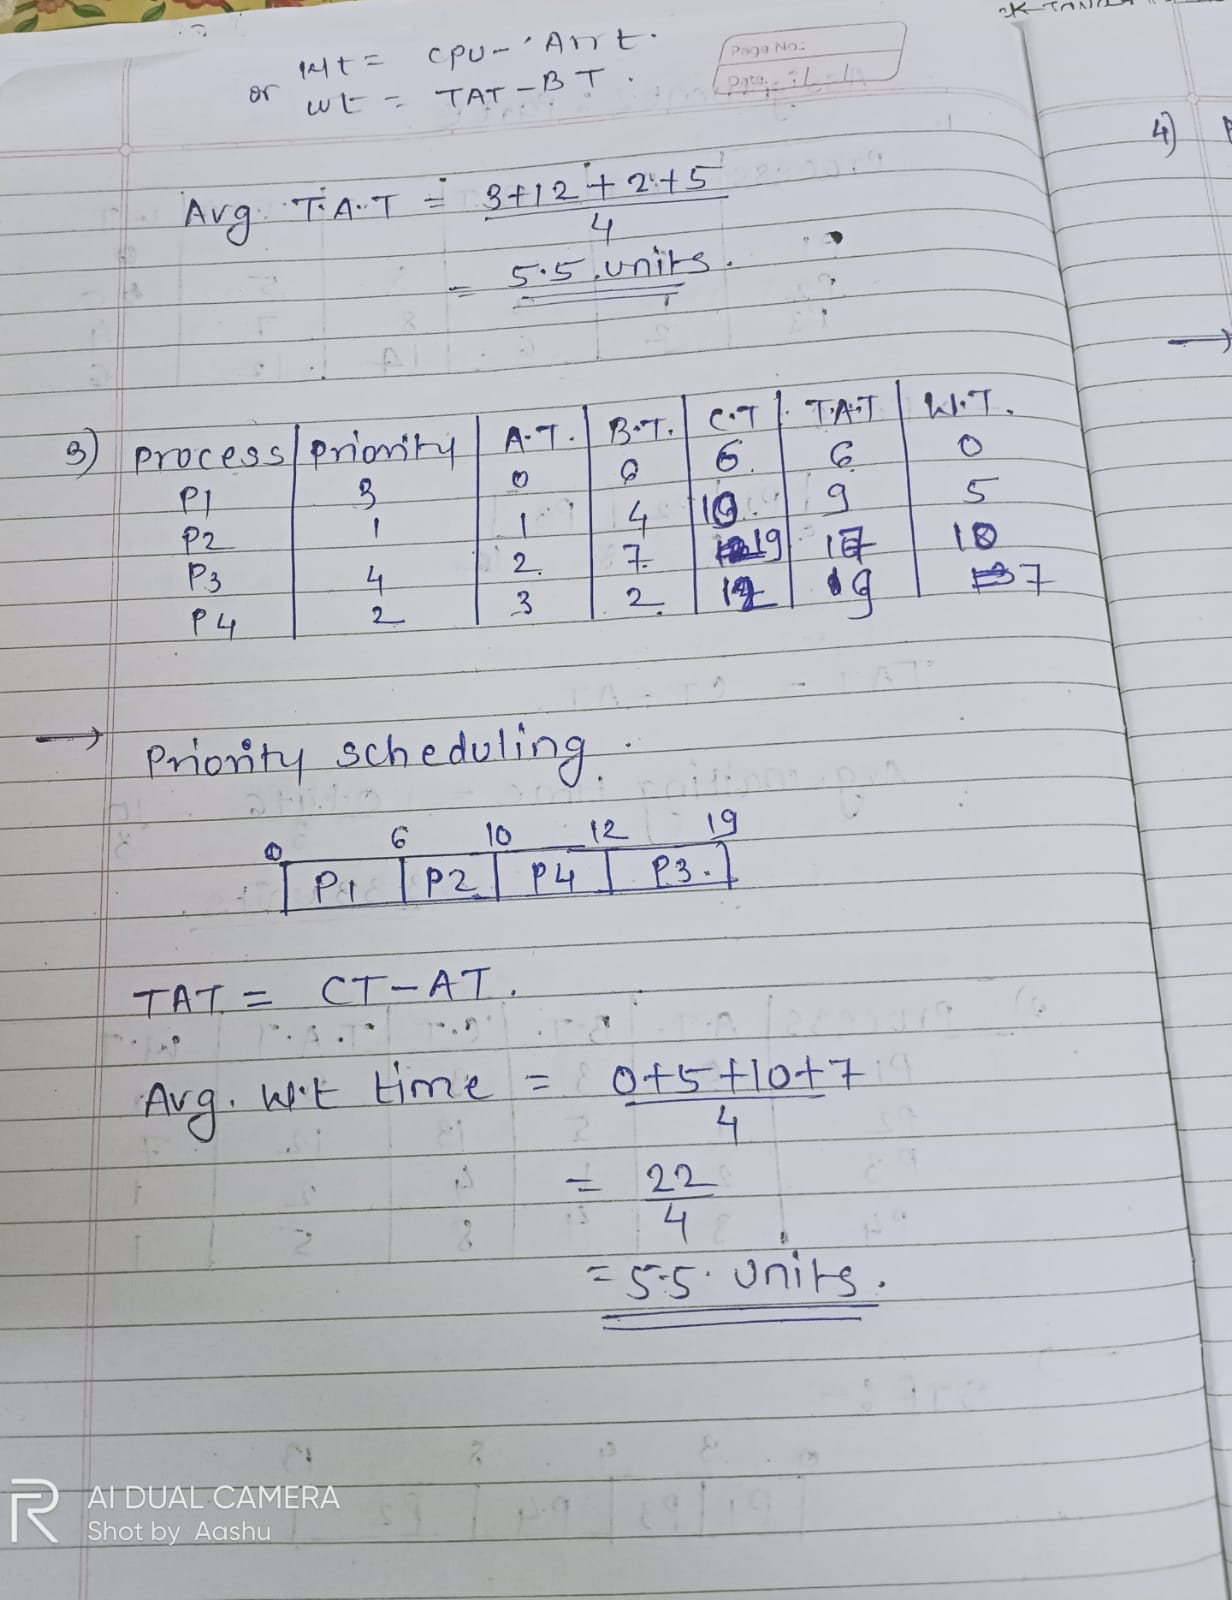 wt = CPU - Arrt.
or wt = TAT - BT.
Page No.:
Date:
4)
Avg. T.A.T = 3+12+2+5
4
= 5.5 units.
3) Process Priority A.T. B.T. C.T T.A.T W.T.
P1 3 0 6 6 6 0
P2 1 1 4 10 9 5
P3 4 2 7 19 17 10
P4 2 3 2 12 9 7
→ Priority scheduling.
0 6 10 12 19
P1 P2 P4 P3.
TAT = CT - AT.
Avg. W.t time = 0+5+10+7
4
= 22
4
= 5.5. units.
AI DUAL CAMERA
Shot by Aashu